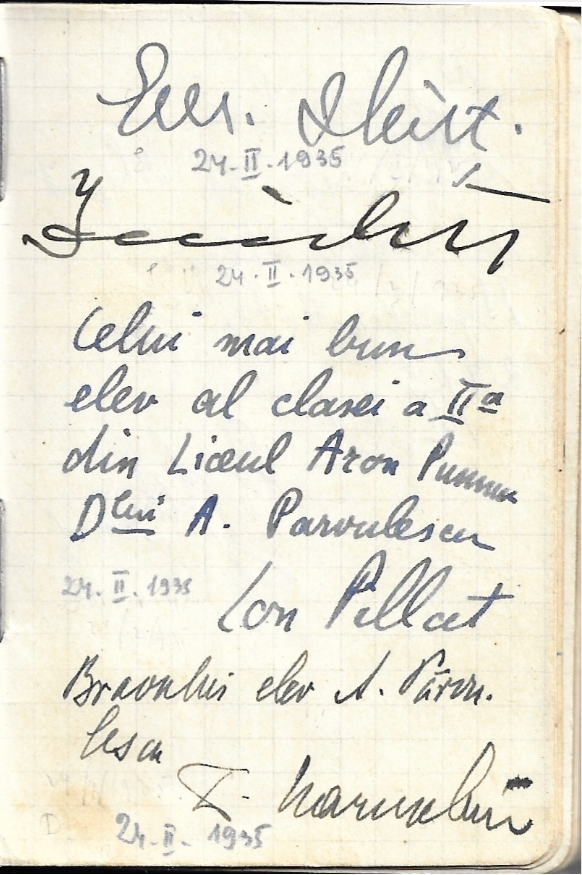 24-II-1935
24-II-1935
Celui mai bun
elev al clasei a IIa
din Liceul Aron Pumnu
Dlui A. Parvulescu
24. II. 1935
Ion Pillat
Bravului elev A. Pârvu-
lescu
24-II-1935